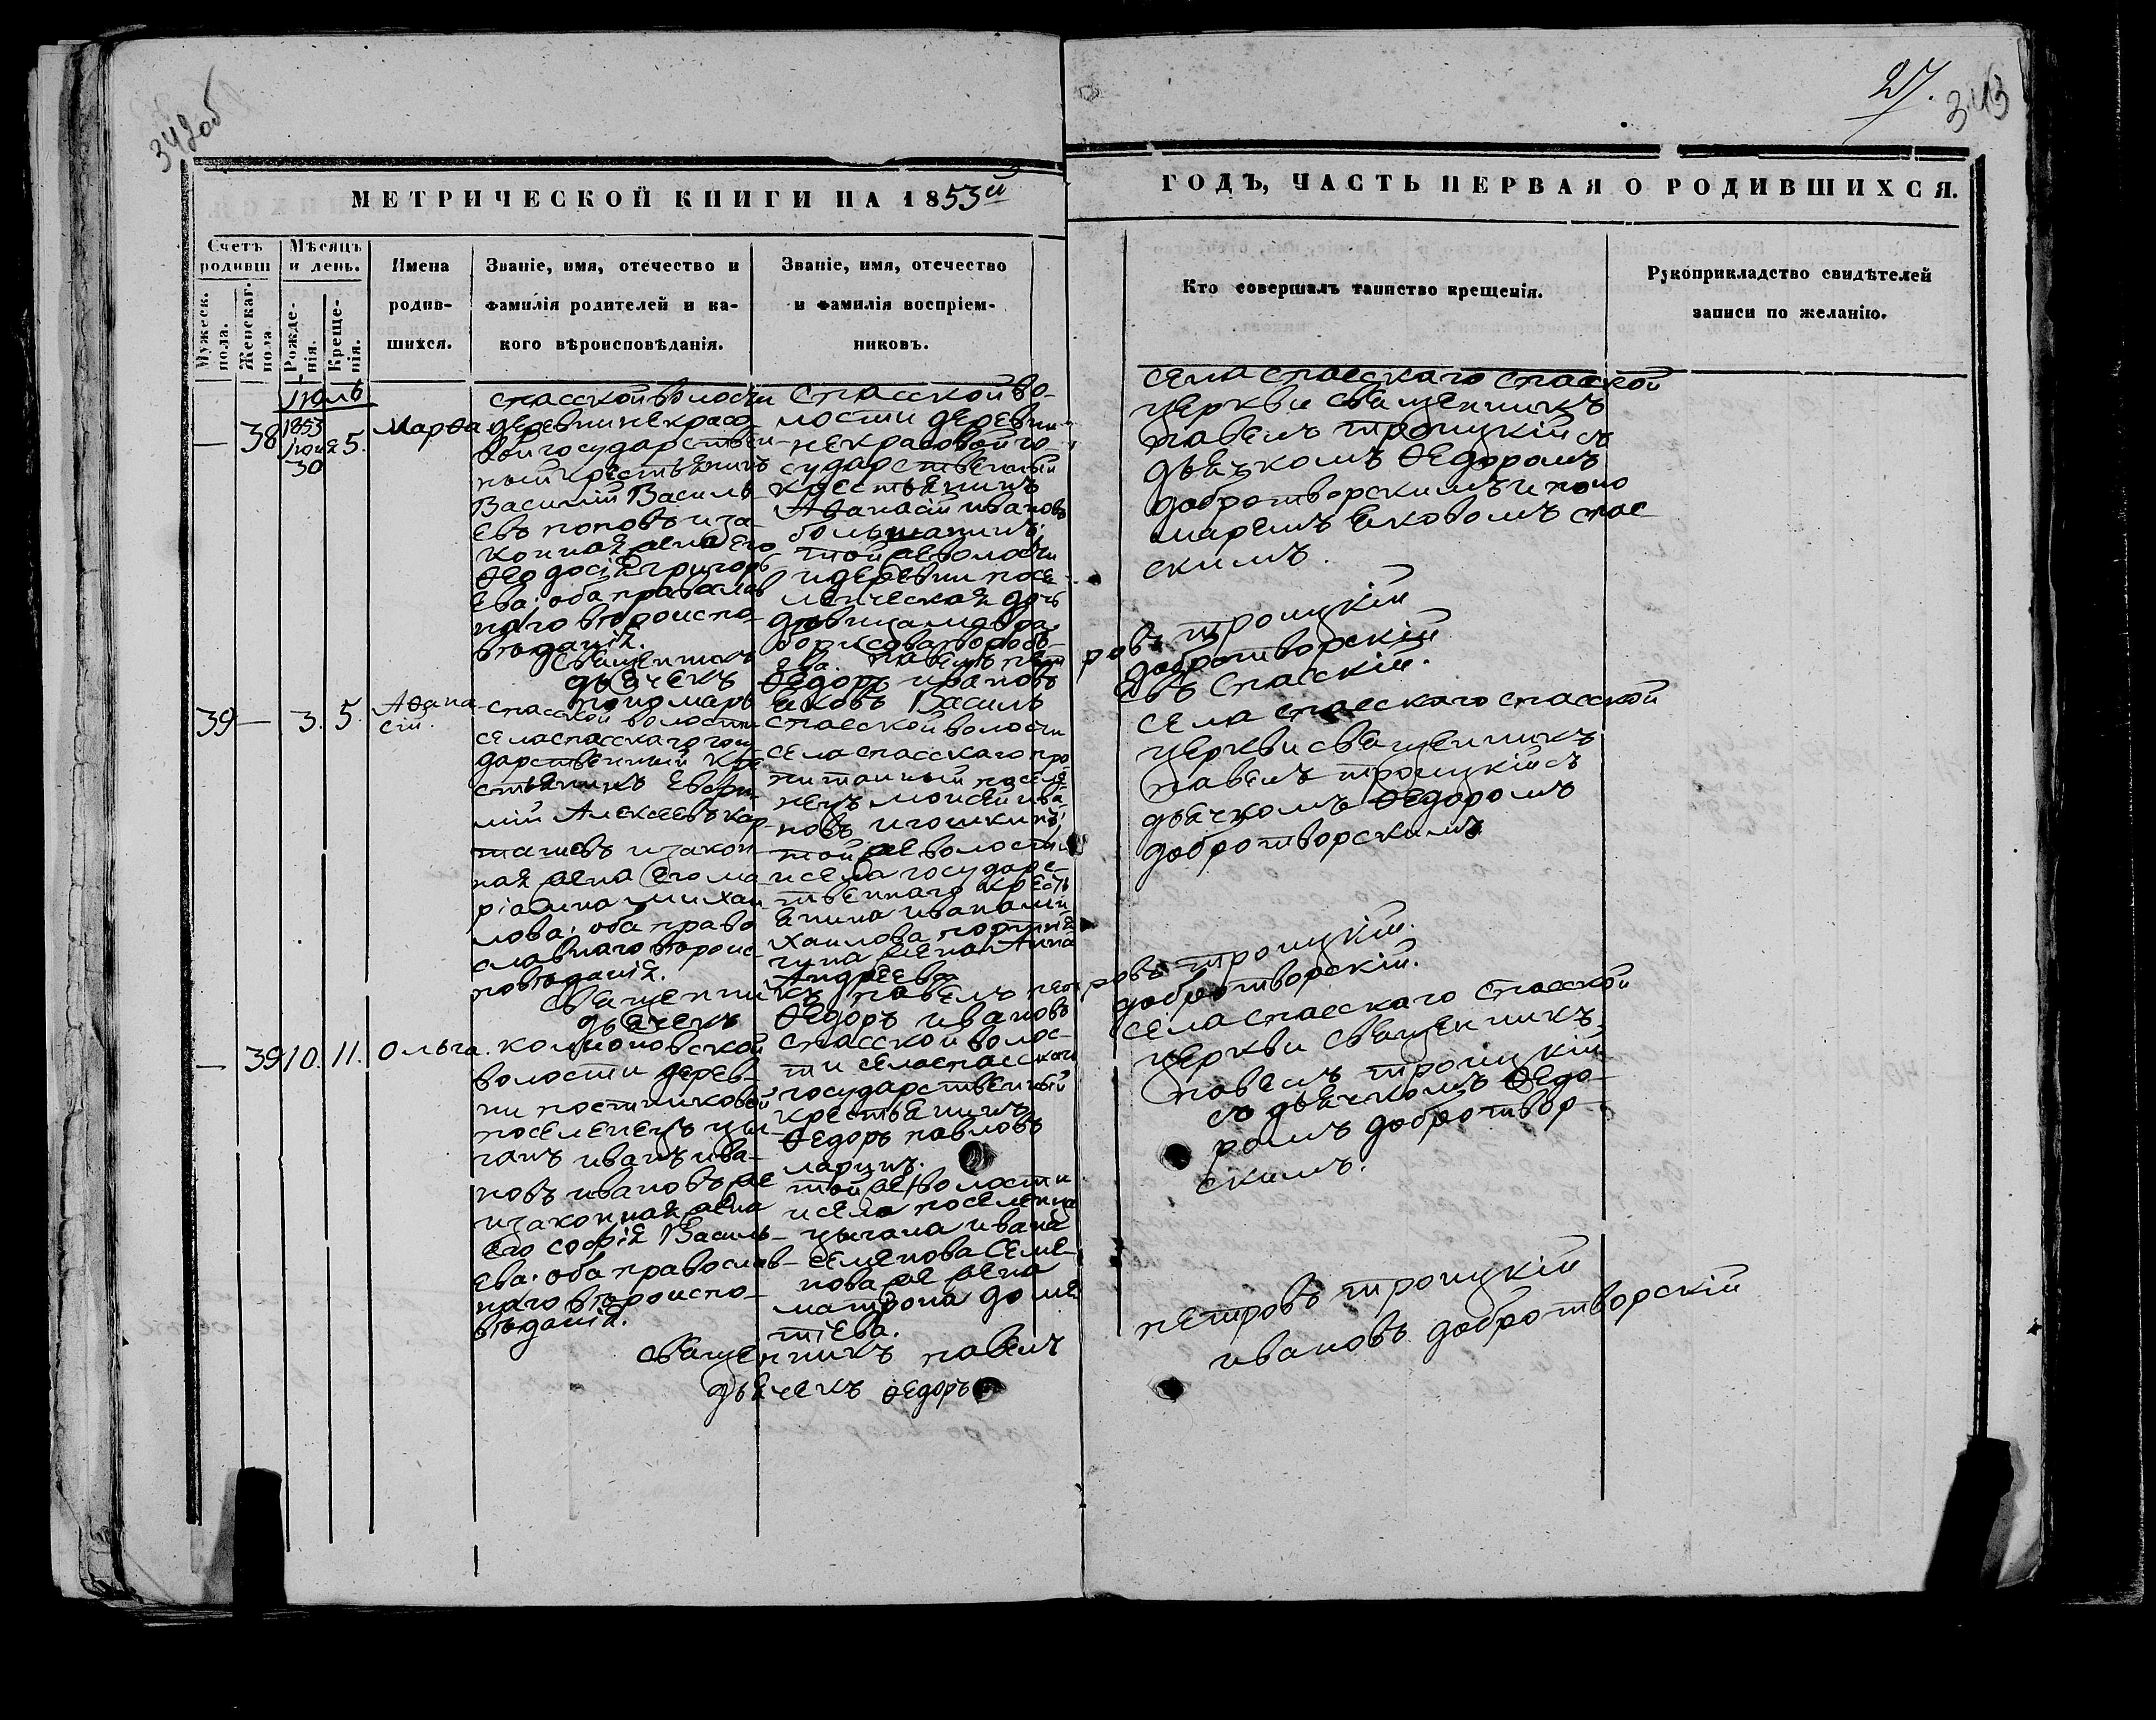 342об
27.
343
МЕТРИЧЕСКОЙ КНИГИ НА 1853й
ГОДЪ, ЧАСТЬ ПЕРВАЯ О РОДИВШИХСЯ.
Счетъ родивш
Мужеск. пола.
Женскаг. пола
Мѣсяцъ и день.
Рожде-нія.
Креще-нія.
Имена
родив-
шихся.
Званіе, имя, отечество и
фамилія родителей и ка-
кого вѣроисповѣданія.
Званіе, имя, отечество
и фамилія воспріем-
никовъ.
Кто совершалъ таинство крещенія.
Рукоприкладство свидѣтелей
записи по желанію.
Іюль
1853
Іюня
30
— 38
5.
Марѳа
спасской волости
деревни некрасо-
вой государствен-
ный крестьянинъ
Василій Василь-
евъ поповъ и за-
конная жена его
Ѳеодосія григорь
ева: оба православ
наго вѣроиспо-
вѣданія.
Спасской во-
лости деревни
некрасовой го
сударственный
крестьянинъ
Аѳанасій ивановъ
большанинъ;
той же волости
и деревни посе
ленческая дочь
дѣвица
борисова воробь-
ева.
села спасскаго спасской
церкви священникъ
павелъ троицкій съ
дьячкомъ Ѳедоромъ
добротворскимъ и поно
маремъ яковомъ спас-
скимъ.
Священникъ павелъ петровъ троицкій
дьячекъ Ѳедоръ ивановъ добротворскій
пономарь яковъ Васильевъ Спасскій.
39 — 3. 5.
Аѳана-
сій.
спасской волости
села спасскаго госу
дарственный кре
стьянинъ Евѳи-
мій Алексеевъ кар-
ташевъ и закон-
ная жена его ма-
ріамна михаи-
лова: оба право
славнаго вѣроис-
повѣданія.
спасской волости
села спасскаго про-
питанный поселе-
нецъ моисей ива-
новъ игошкинъ;
той же волости
и села государс-
твеннаго кресть
янина ивана ми-
хаилова
жена Анна
Андреева
села спасскаго спасской
церкви священникъ
павелъ троицкій съ
дьячкомъ Ѳедоромъ
добротворскимъ
Священникъ павелъ петровъ троицкій.
дьячекъ Ѳедоръ ивановъ добротворскій.
— 39 10. 11.
Ольга.
волости дерев-
ни постниковой
поселенецъ цы-
ганъ иванъ ива-
новъ ивановъ же
и законная жена
его софія Василь-
ева: оба православ-
наго вѣроиспо-
вѣданія.
спасской волос-
ти села спасскаго
государственный
крестьянинъ
Ѳедоръ павловъ
ларинъ.
той же волости
и села поселенца
цыгана ивана
семенова Семе-
нова же жена
матрона доме
тіева.
села спасскаго спасской
церкви священникъ
павелъ троицкій
съ дьячкомъ Ѳедо-
ромъ добротвор-
скимъ.
священникъ павелъ петровъ троицкій
дьячекъ Ѳедоръ ивановъ добротворскій